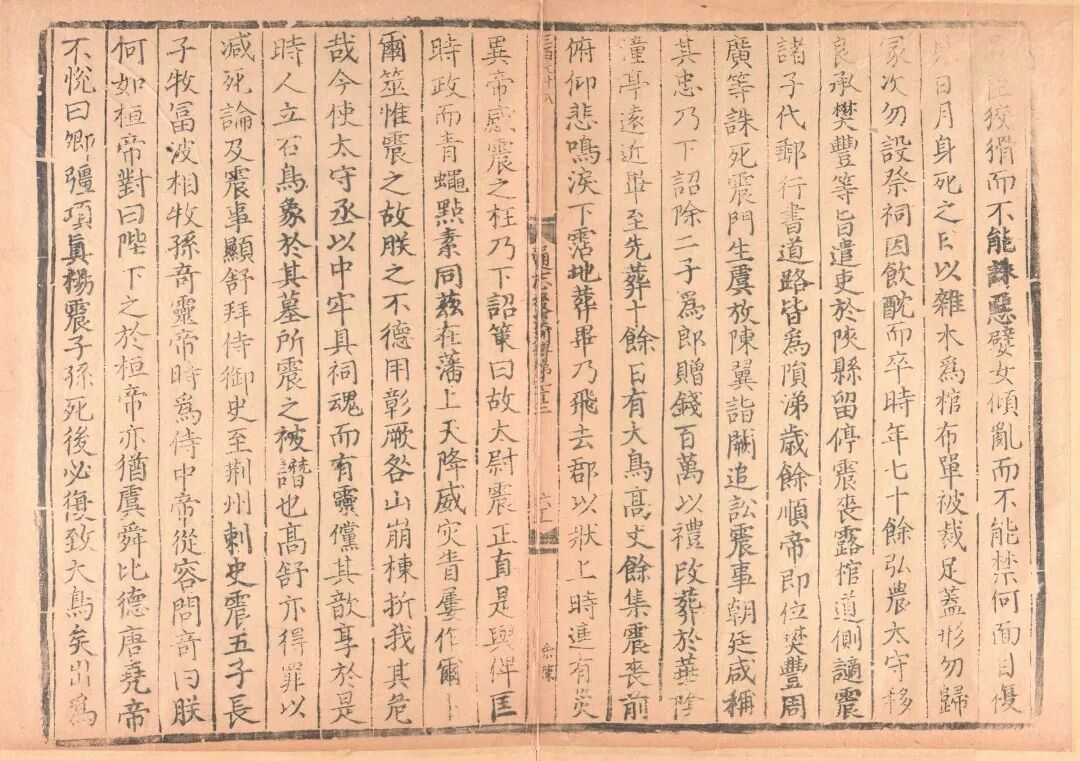 狡猾而不能誅惡嬖女傾亂而不能禁何面目復
見日月身死之日以雜木爲棺布單被裁足蓋形勿歸
冢次勿設祭祠因飲酖而卒時年七十餘弘農太守移
良承樊豐等旨遣吏於陝縣留停震喪露棺道側讁震
諸子代郵行書道路皆為隕涕歲餘順帝即位樊豐周
廣等誅死震門生虞放陳翼詣闕追訟震事朝廷咸稱
其忠乃下詔除二子爲郎贈錢百萬以禮改葬於華陰
潼亭遠近畢至先葬十餘日有大鳥高丈餘集震喪前
俯仰悲鳴淚下霑地葬畢乃飛去郡以狀上時連有災
三百六十八
通志後漢列傳第二十
異帝感震之枉乃下詔策曰故太尉震正直是與俾匡
時政而青蠅點素同兹在藩上天降威灾眚屢作爾卜
爾筮惟震之故朕之不德用彰厥咎山崩棟折我其危
哉今使太守丞以中牢具祠魂而有靈儻其歆享於是
時人立石鳥象於其墓所震之被譖也高舒亦得罪以
减死論及震事顯舒拜侍御史至荆州刺史震五子長
子牧冨波相牧孫竒靈帝時爲侍中帝從容問竒曰朕
何如桓帝對曰陛下之於桓帝亦猶虞舜比德唐堯帝
不悅曰卿彊項真楊震子孫死後必復致大鳥矣出爲